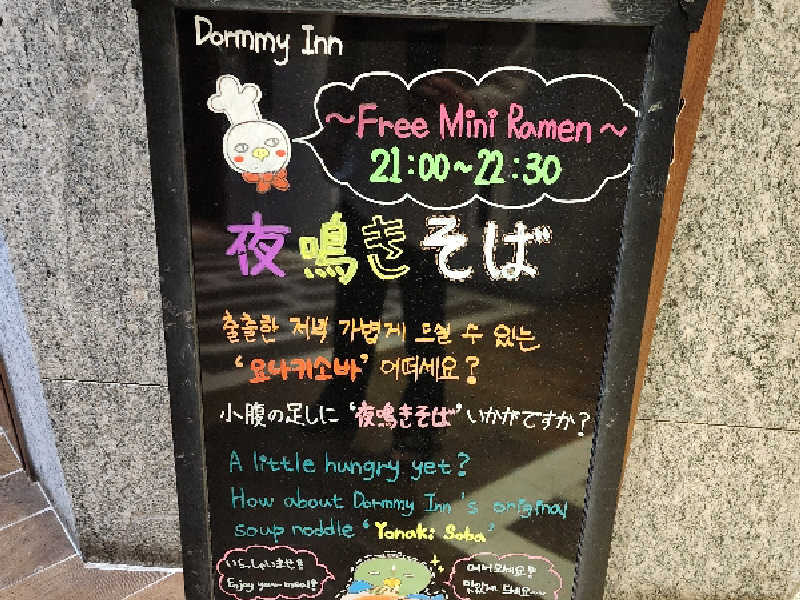 Dormmy Inn
~Free Mini Ramen~
21:00~22:30
夜鳴きそば
출출한 저녁 가볍게 드실 수 있는
'요나키소바' 어떠세요?
小腹の足しに"夜鳴きそば"いかがですか?
A little hungry yet?
How about Dormmy Inn's original
soup noddle "Yonaki Soba"
いらっしゃいませ!!
Enjoy your meal!
어서오세요?
맛있게 드세요~